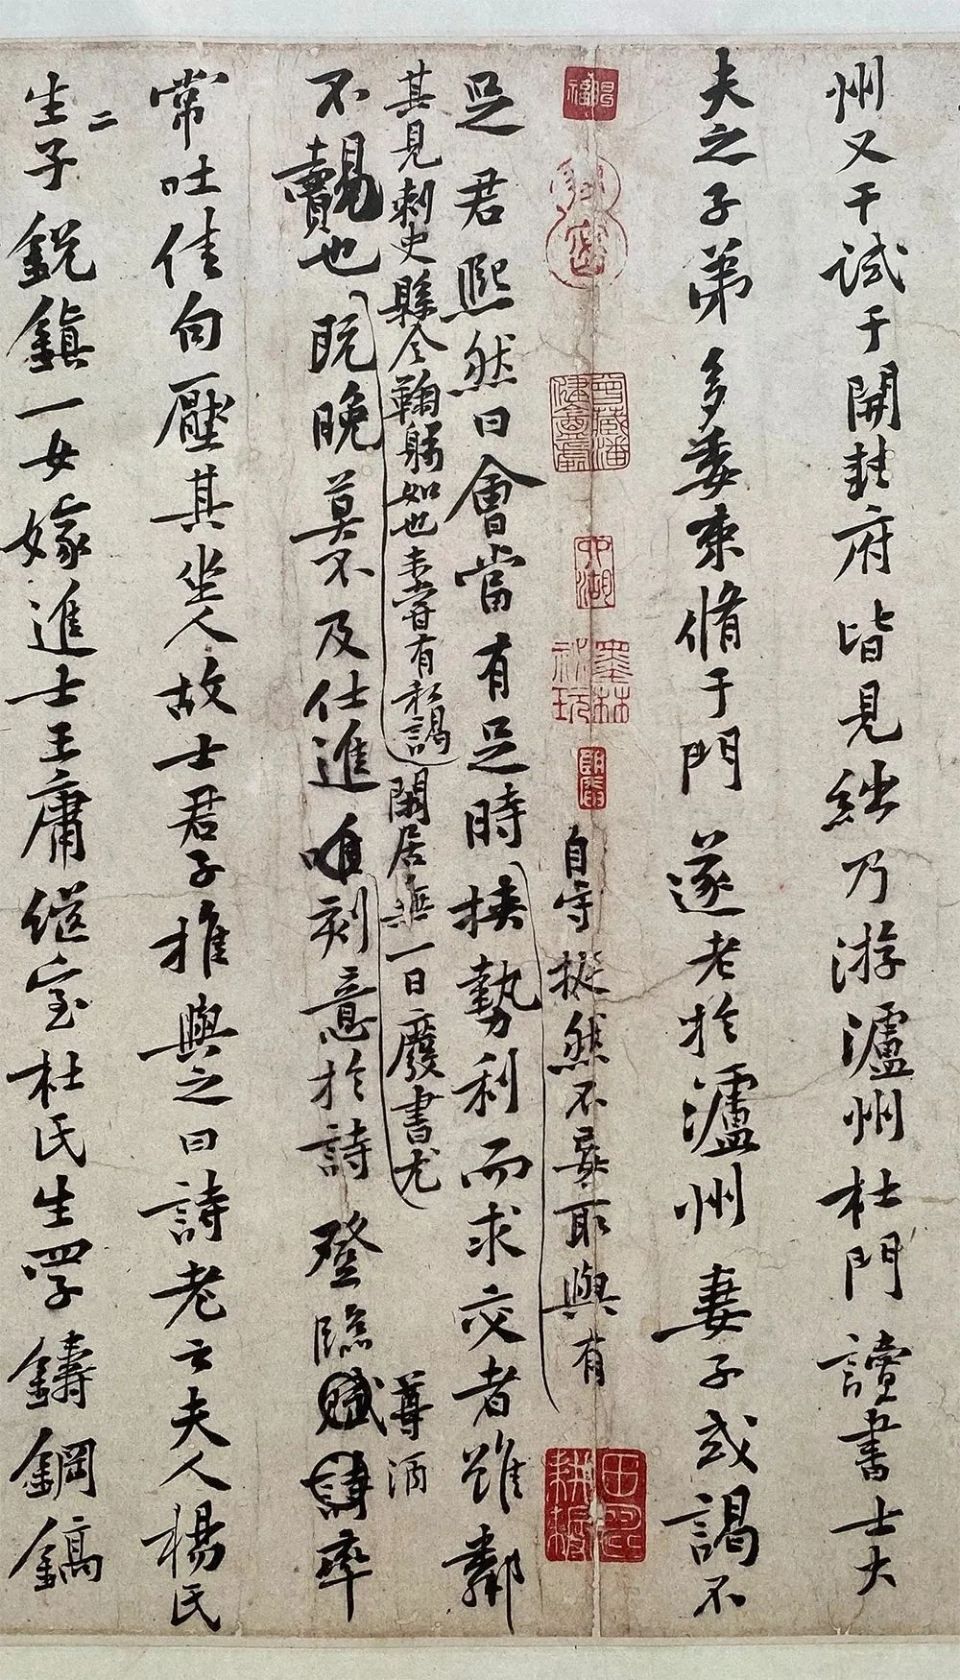 州又干試于開封府皆見絀乃游瀘州杜門讀書士大
夫之子弟多委束脩于門遂老於瀘州妻子或謁不
自守挺然不妄取與有
足君熙然曰會當有足時挾勢利而求交者雖鄰
其見刺史縣令鞠躬如也未嘗有私謁閑居無一日廢書尤
尊酒
不覿也既晚莫不及仕進唯刻意於詩登臨賦詩率
常吐佳句壓其坐人故士君子推與之曰詩老云夫人楊氏
生二子銳鎮一女嫁進士王庸繼室杜氏生四子鑄鋼鎬